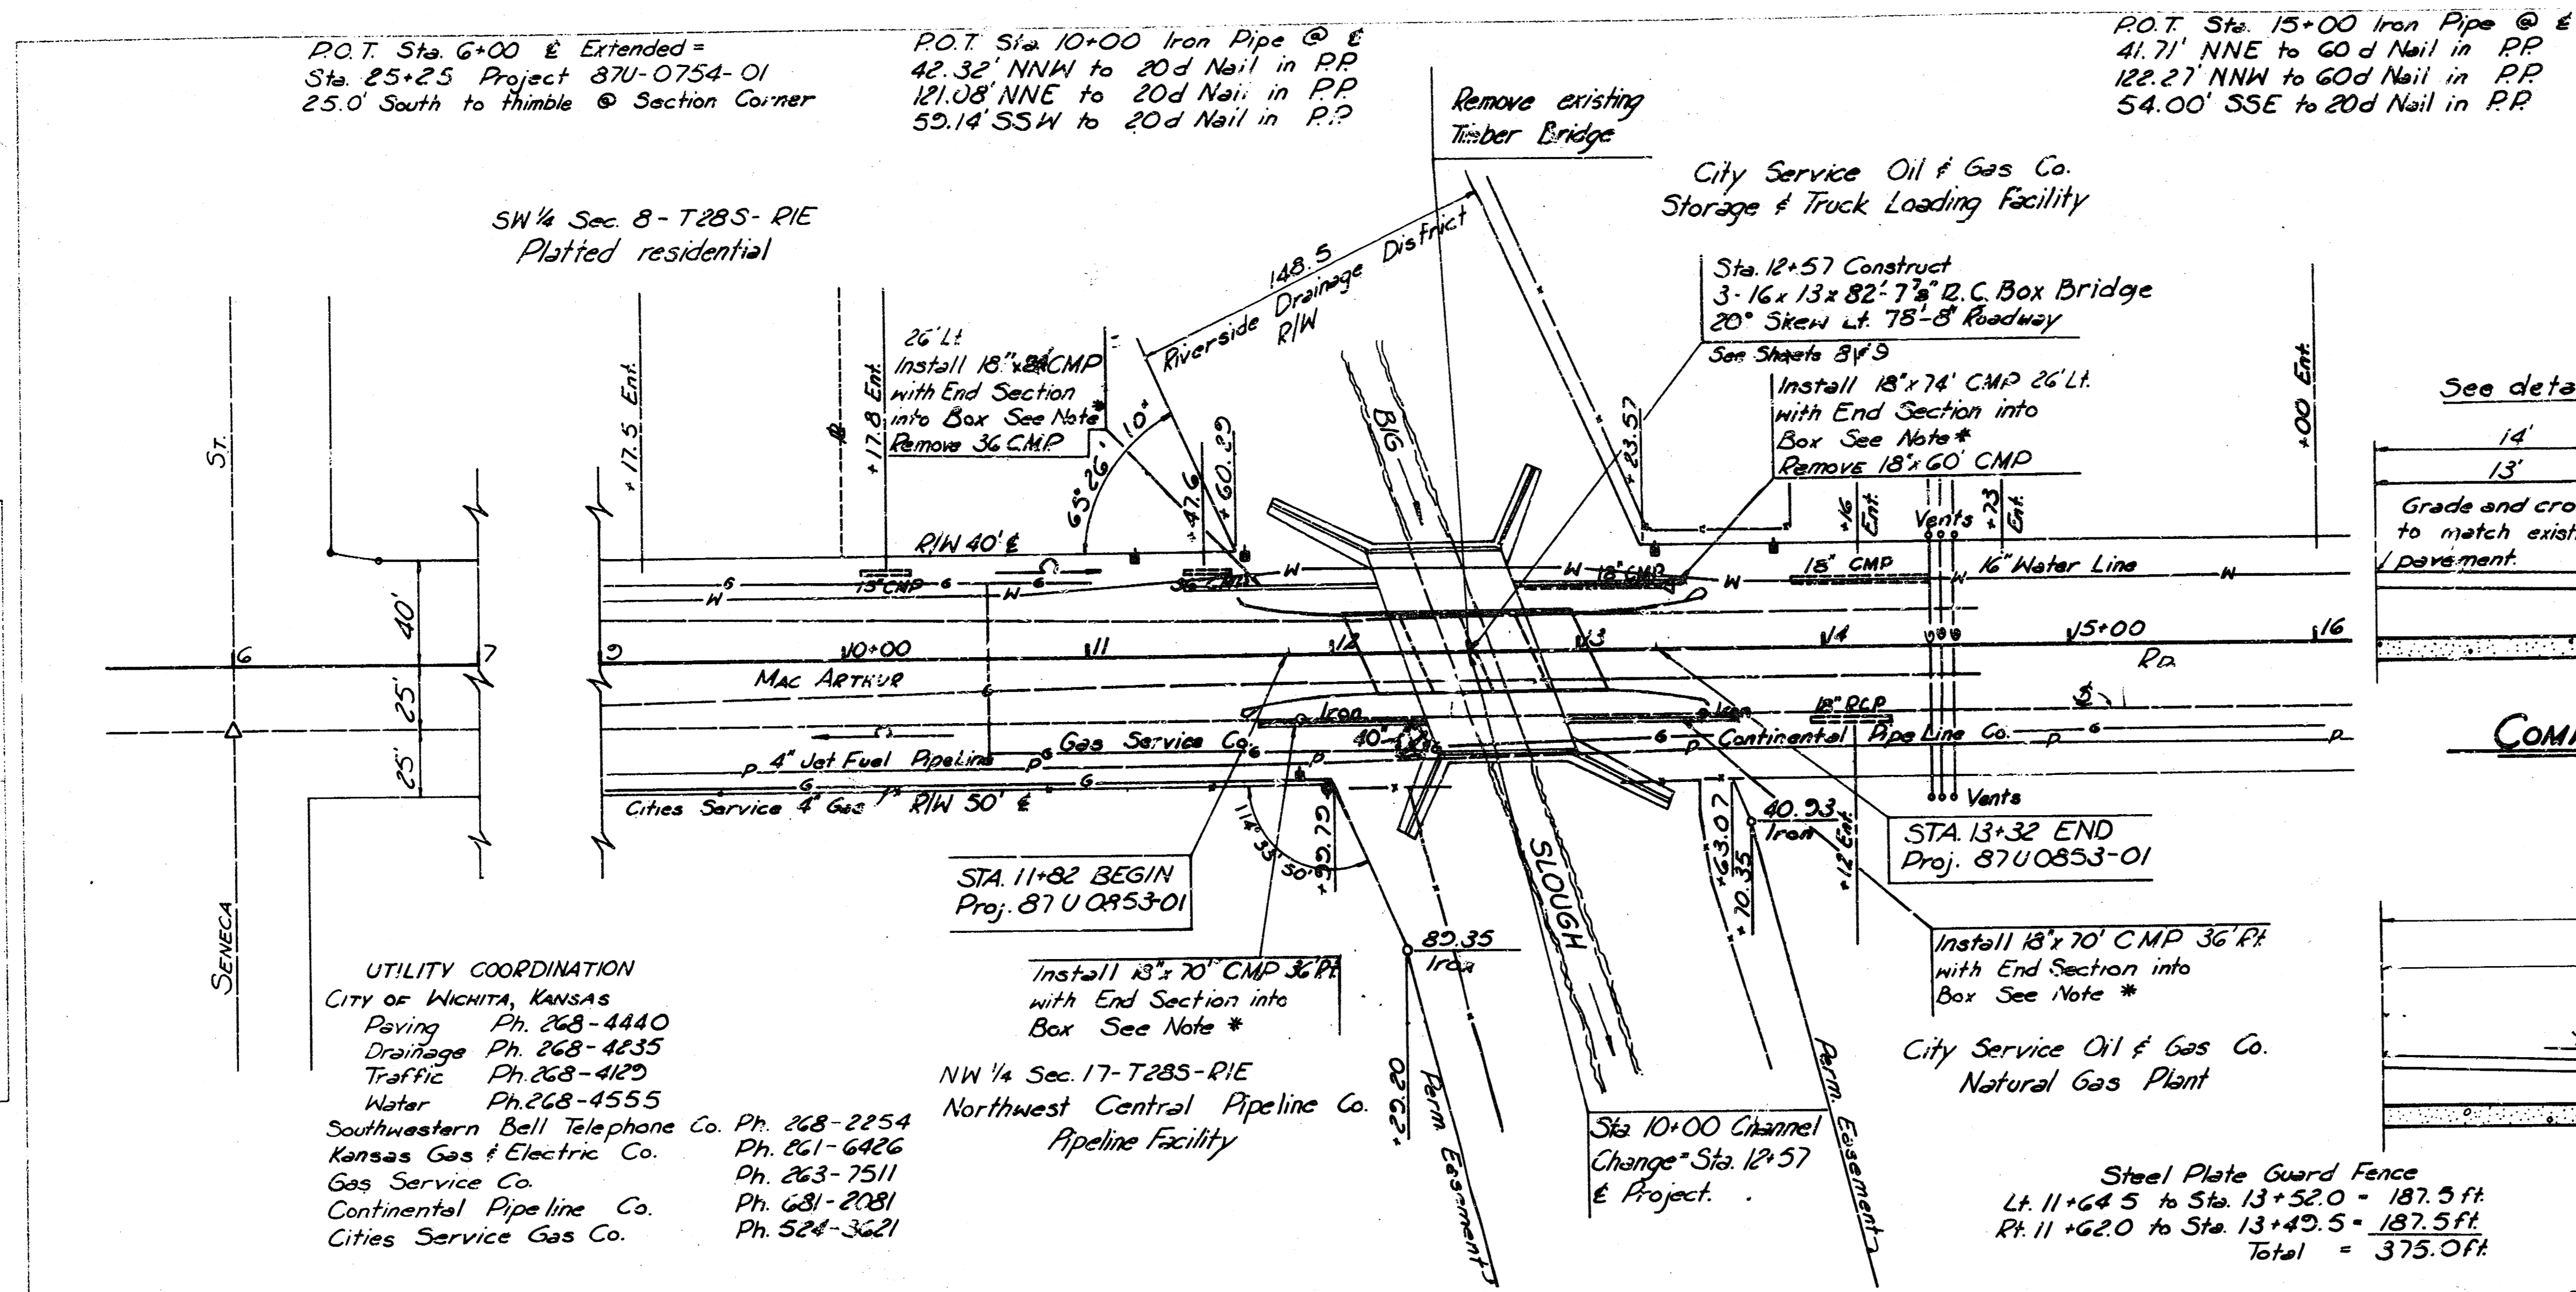 P.O.T. Sta. 6+00 ℄ Extended =
Sta. 25+25 Project 87U-0754-01
25.0' South to thimble @ Section Corner
P.O.T. Sta. 10+00 Iron Pipe @ ℄
42.32' NNW to 20d Nail in P.P.
121.08' NNE to 20d Nail in P.P.
59.14' SSW to 20d Nail in P.P.
P.O.T. Sta. 15+00 Iron Pipe @ ℄
41.71' NNE to 60d Nail in P.P.
122.27' NNW to 60d Nail in P.P.
54.00' SSE to 20d Nail in P.P.
Remove existing
Timber Bridge
City Service Oil & Gas Co.
Storage & Truck Loading Facility
SW 1/4 Sec. 8 - T28S - R1E
Platted residential
148.5
Riverside Drainage District
R/W
Sta. 12+57 Construct
3-16 x 13 x 82'-7 7/8" R.C. Box Bridge
20° Skew Lt. 78'-8" Roadway
See Sheets 8 & 9
26' Lt.
Install 18" CMP
with End Section
into Box See Note *
Remove 36 CMP
Install 18"x 74' CMP 26' Lt.
with End Section into
Box See Note *
Remove 18"x 60' CMP
+17.5 Ent.
+17.8 Ent.
65° 26' 10"
+47.6
+60.29
BIG
+23.57
+16 Ent.
Vents
+73 Ent.
+00 Ent.
See deta
14'
13'
Grade and cro
to match exist
pavement.
ST.
R/W 40' ℄
G
G
15" CMP
W
W
36 CMP
W
W
18" CMP
W
18" CMP
W
16" Water Line
W
40'
25'
25'
6
7
9
10+00
11
12
13
14
15+00
16
MAC ARTHUR
RD.
G
Iron
40"
Iron
18" RCP
Gas Service Co.
G
G
Continental Pipe Line Co.
G
P
P
P
4" Jet Fuel Pipeline
P
P
P
G
G
Cities Service 4" Gas
R/W 50' ℄
Vents
COM
114° 35' 50"
+99.79
+63.07
+70.35
40.93
Iron
+12 Ent.
STA. 11+82 BEGIN
Proj. 87 U 0853-01
STA. 13+32 END
Proj. 87 U 0853-01
SLOUGH
89.35
Iron
SENECA
Install 18"x 70' CMP 36' Rt.
with End Section into
Box See Note *
Install 18"x 70' CMP 36' Rt.
with End Section into
Box See Note *
UTILITY COORDINATION
CITY OF WICHITA, KANSAS
Paving Ph. 268-4440
Drainage Ph. 268-4235
Traffic Ph. 268-4129
Water Ph. 268-4555
Southwestern Bell Telephone Co. Ph. 268-2254
Kansas Gas & Electric Co. Ph. 261-6426
Gas Service Co. Ph. 263-7511
Continental Pipeline Co. Ph. 681-2081
Cities Service Gas Co. Ph. 524-3621
NW 1/4 Sec. 17-T28S-R1E
Northwest Central Pipeline Co.
Pipeline Facility
+29.20
Perm. Easement
Sta. 10+00 Channel
Change = Sta. 12+57
℄ Project.
Perm. Easement
City Service Oil & Gas Co.
Natural Gas Plant
Steel Plate Guard Fence
Lt. 11+64.5 to Sta. 13+52.0 = 187.5 ft.
Rt. 11+62.0 to Sta. 13+49.5 = 187.5 ft.
Total = 375.0 ft.